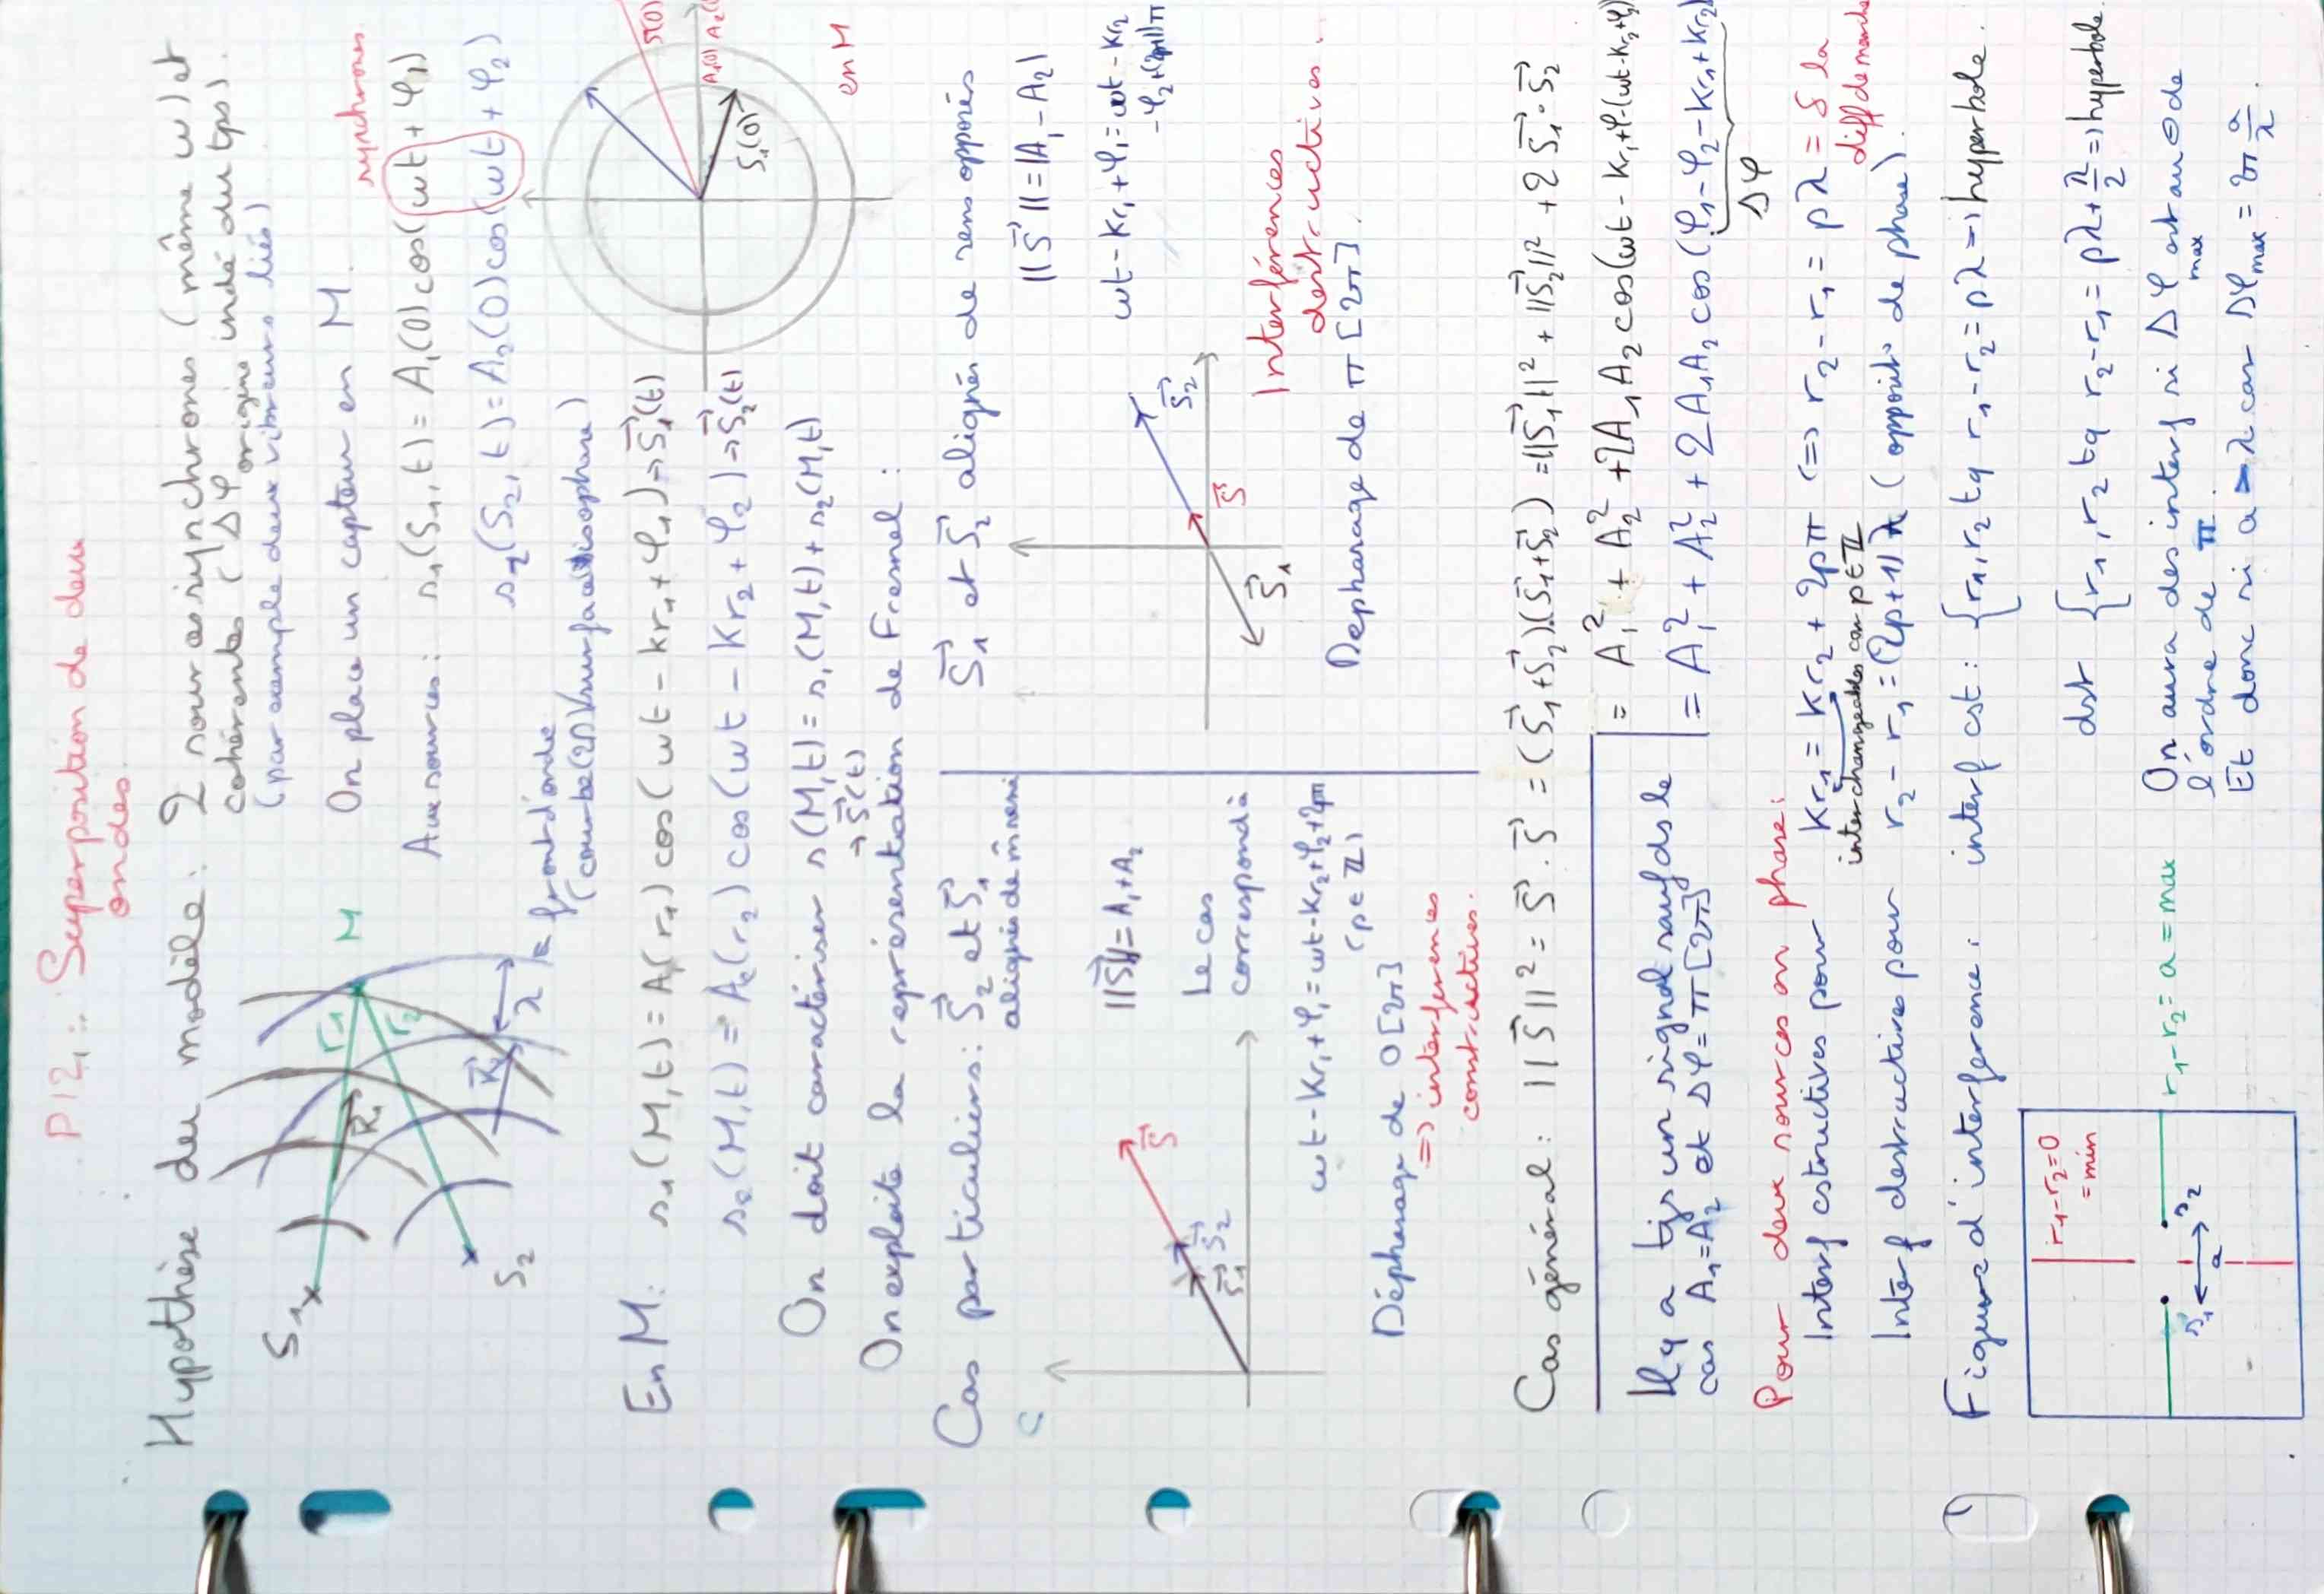 P12: Superposition de deux
ondes.
Hypothèse du modèle: 2 sources synchrones (même ω) et
cohérentes (Δφ origine indé du tps).
(par exemple deux vibreurs liés)
On place un capteur en M.
synchrones
Aux sources: s₁(S₁,t) = A₁(0)cos(ωt + φ₁)
s₂(S₂,t) = A₂(0)cos(ωt + φ₂)
S₁
S₂
M
r₁
r₂
K₁
K
λ
front d'onde
(courbe(2D)/surface isophase)
S₁(0)
S(0)
A₁(0)
en M
En M: s₁(M,t) = A₁(r₁)cos(ωt - kr₁ + φ₁) ⇒ S₁(t)
s₂(M,t) = A₂(r₂)cos(ωt - Kr₂ + φ₂) ⇒ S₂(t)
On doit caractériser s(M,t) = s₁(M,t) + s₂(M,t)
→ S(t)
On exploite la représentation de Fresnel:
Cas particuliers: S₂ et S₁
alignés de m̂ sens
||S|| = A₁+A₂
Le cas
correspond à
ωt - Kr₁ + φ₁ = ωt - Kr₂ + φ₂ + 2pπ
(p ∈ Z)
S₁ S₂ S
Déphasage de 0[2π]
⇒ interférences
constructives.
S₁ et S₂ alignés de sens opposés
||S|| = |A₁ - A₂|
ωt - Kr₁ + φ₁ = ωt - Kr₂
- φ₂ + (2p+1)π
S₁ S S₂
Interférences
destructives.
Dephasage de π [2π].
Cas général: ||S||² = S · S = (S₁+S₂)·(S₁+S₂) = ||S₁||² + ||S₂||² + 2 S₁ · S₂
= A₁² + A₂² + 2A₁A₂cos(ωt - Kr₁ + φ₁ - (ωt - Kr₂ + φ₂))
= A₁² + A₂² + 2A₁A₂cos(φ₁ - φ₂ - Kr₁ + Kr₂)
Δφ
Il y a tjs un signal sauf ds le
cas A₁ = A₂ et Δφ = π [2π]
Pour deux sources en phase:
Interf cstructives pour Kr₁ = Kr₂ + 2pπ ⇔ r₂ - r₁ = pλ = δ la
diff de marche
interchangeables car p ∈ Z
Interf destructives pour r₂ - r₁ = (2p+1) (opposit° de phase).
Figure d'interférence: interf cst: {r₁, r₂ tq r₁ - r₂ = pλ ⇒ hyperbole.
dst {r₁, r₂ tq r₂ - r₁ = pλ + λ/2 ⇒ hyperbole.
r₁ - r₂ = 0
= min
s₁ a s₂
r₁ - r₂ = a = max
On aura des interf si Δφ max est au ⊖ de
l'ordre de π.
Et donc si a > λ car Δφmax = 2π a/λ.